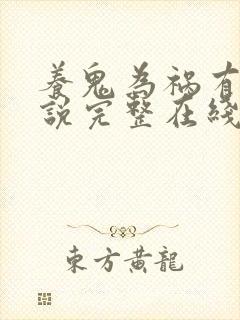 養鬼為禍有
說完整在綫
東方黃龍